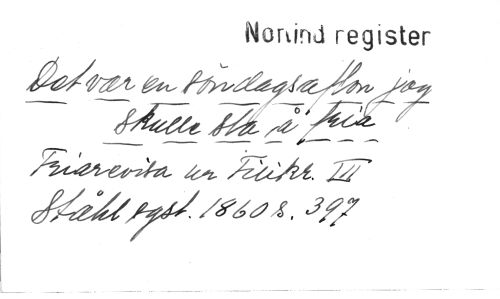 Norvind register
Det var en söndagsafton jag
skulle sta å' fria
Friarevisa ur Tillkr. III
Ståhl sgst. 1860 s. 397